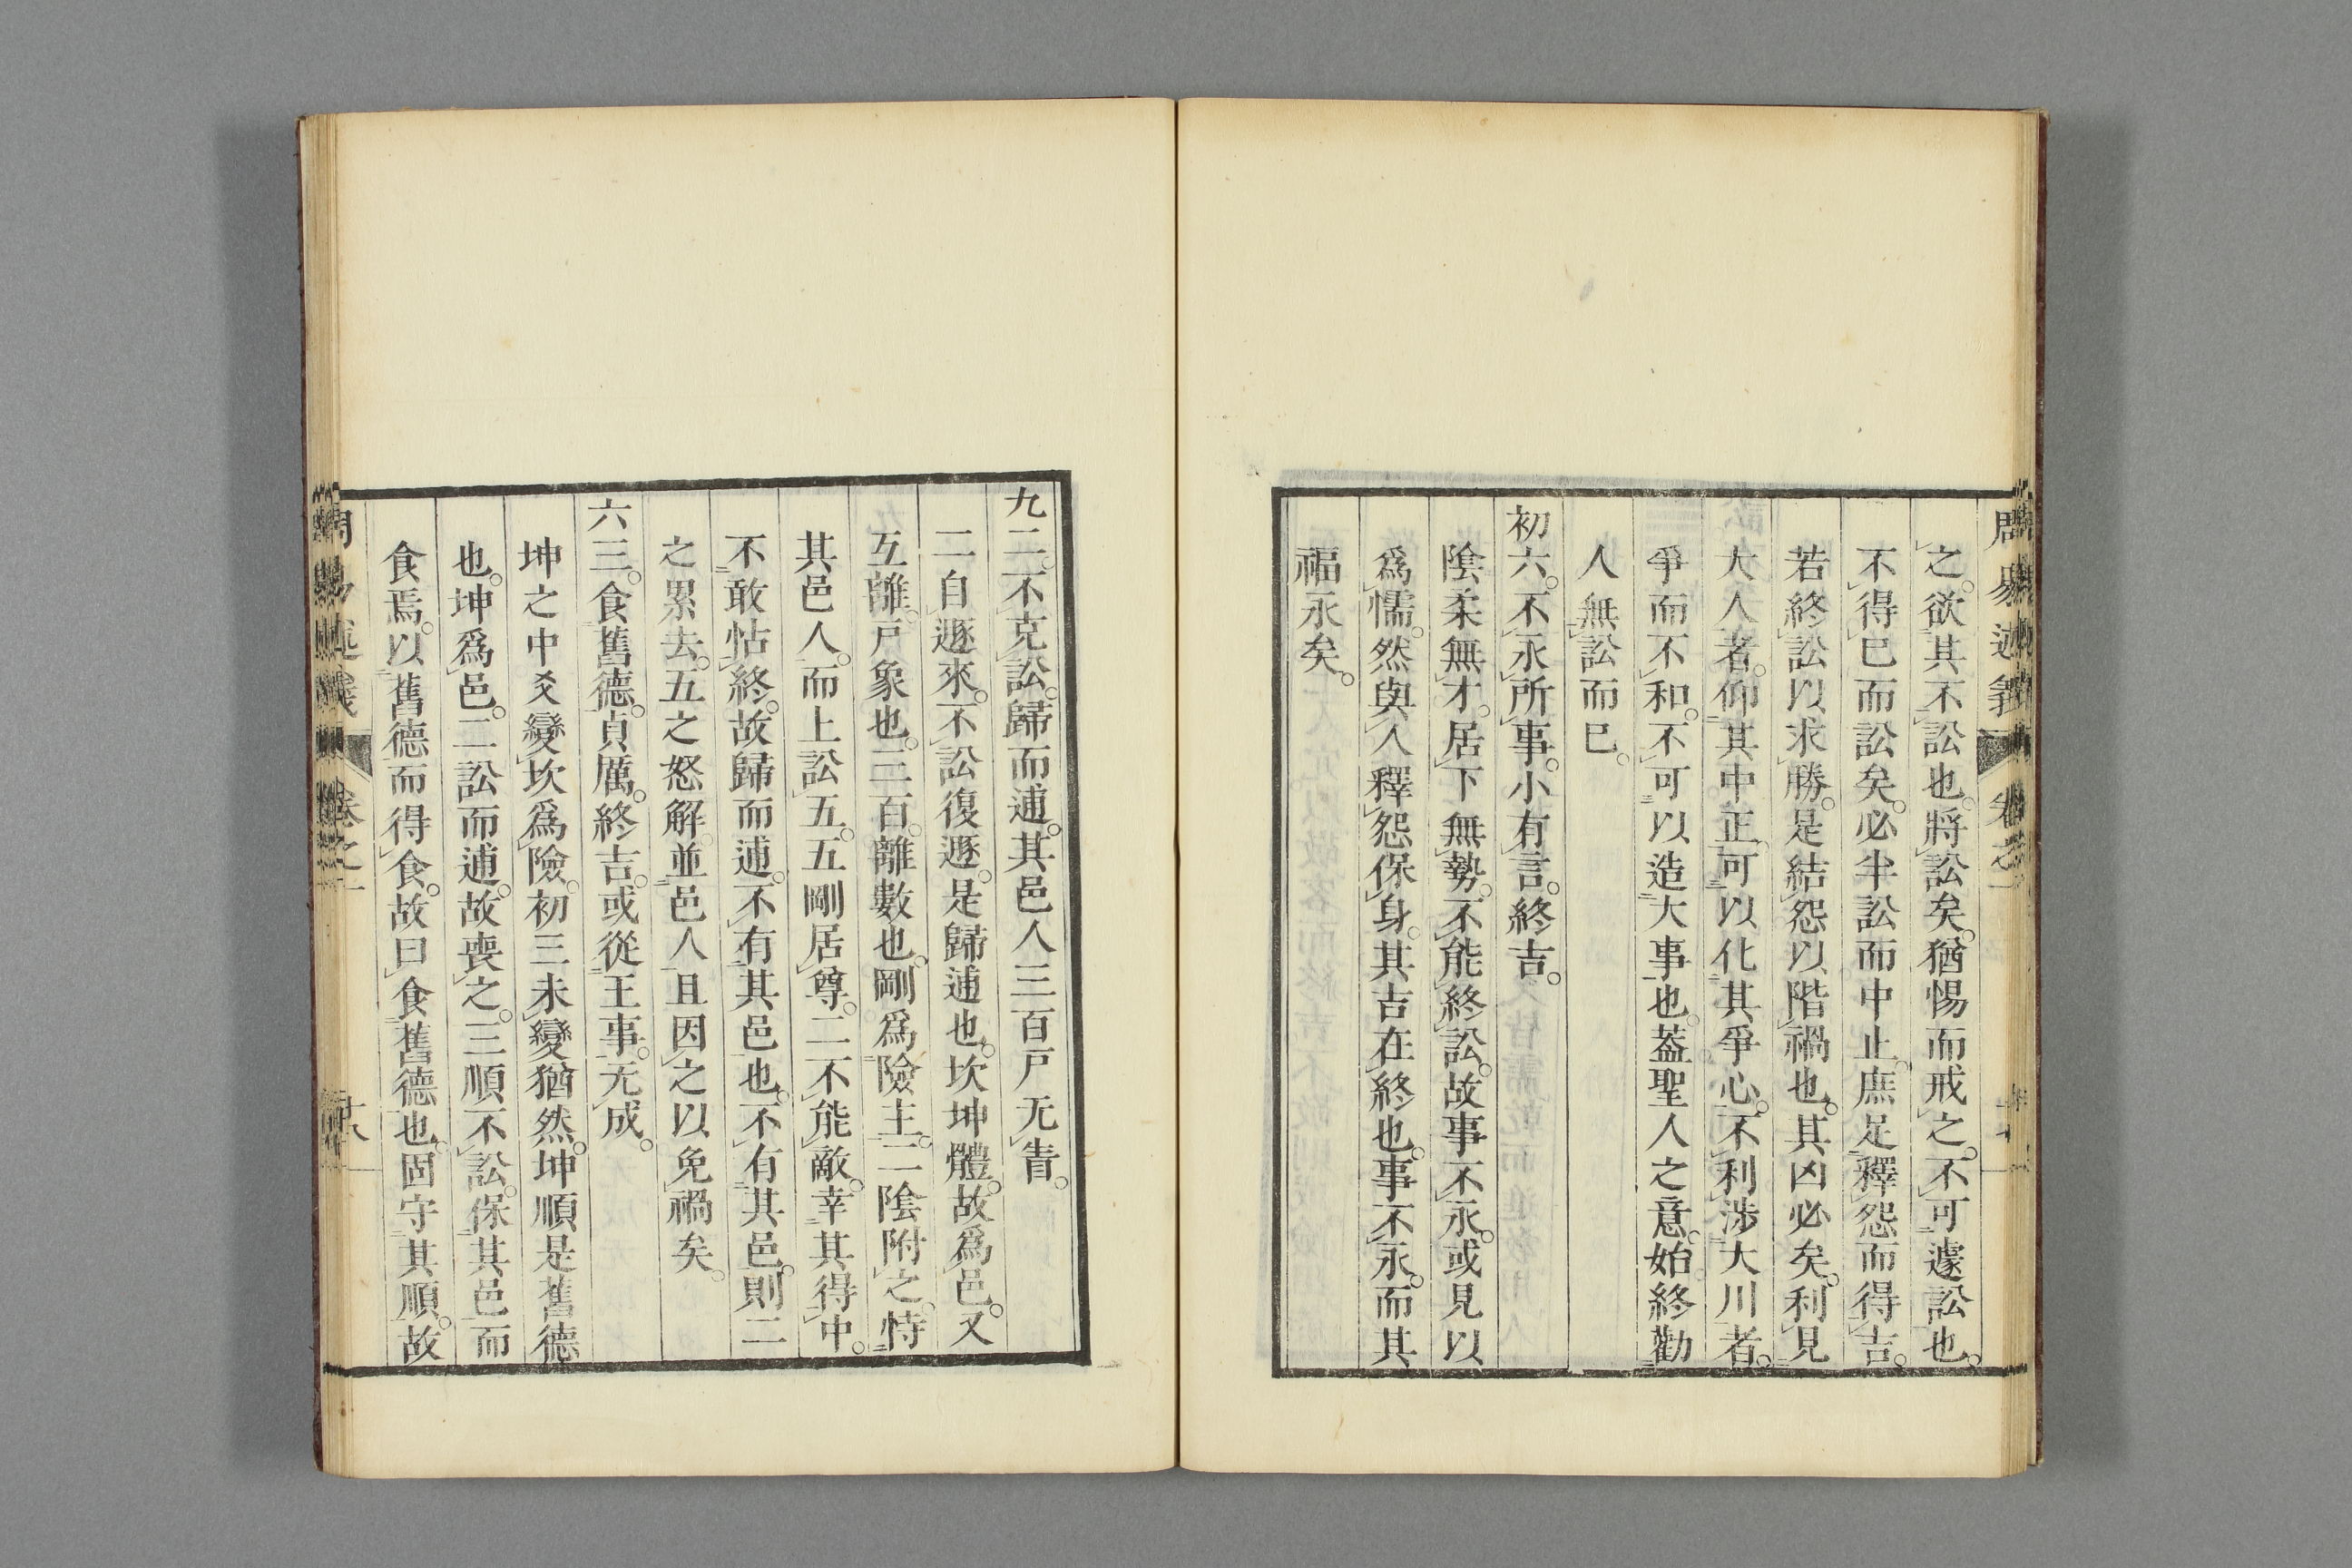 之。欲其不訟也。將訟矣。猶惕而戒之。不可遽訟也。
不得已而訟矣。必半訟而中止。庶足釋怨而得吉。
若終訟以求勝。是結怨以階禍也。其凶必矣。利見
大人者。仰其中正。可以化其爭心。不利涉大川者。
爭而不和。不可以造大事也。葢聖人之意。始終勸
人無訟而已。
初六。不永所事。小有言。終吉。
陰柔無才。居下無勢。不能終訟。故事不永。或見以
爲懦。然與人釋怨保身。其吉在終也。事不永。而其
福永矣。
九二。不克訟。歸而逋。其邑人三百戸无眚。
二自遯來。不訟復遯。是歸逋也。坎坤體。故爲邑。又
互離。戸象也。三百。離數也。剛爲險主。二陰附之。恃
其邑人。而上訟五。五剛居尊。二不能敵。幸其得中。
不敢怙終。故歸而逋。不有其邑也。不有其邑。則二
之累去。五之怒解。並邑人且因之以免禍矣。
六三。食舊德。貞厲。終吉。或從王事。无成。
坤之中爻變坎爲險。初三未變猶然。坤順是舊德
也。坤爲邑。二訟而逋。故喪之。三順不訟。保其邑而
食焉。以舊德而得食。故曰食舊德也。固守其順。故
周易述義 卷之一 十八